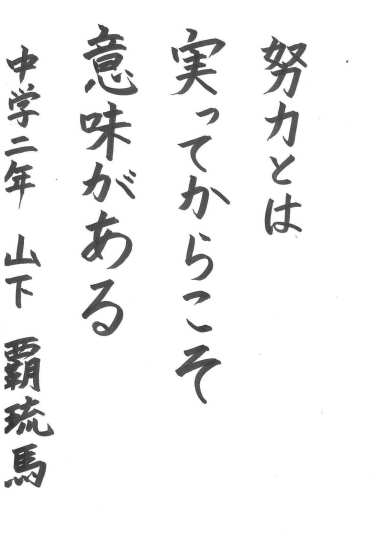 努力とは
実ってからこそ
意味がある
中学二年 山下 覇琉馬